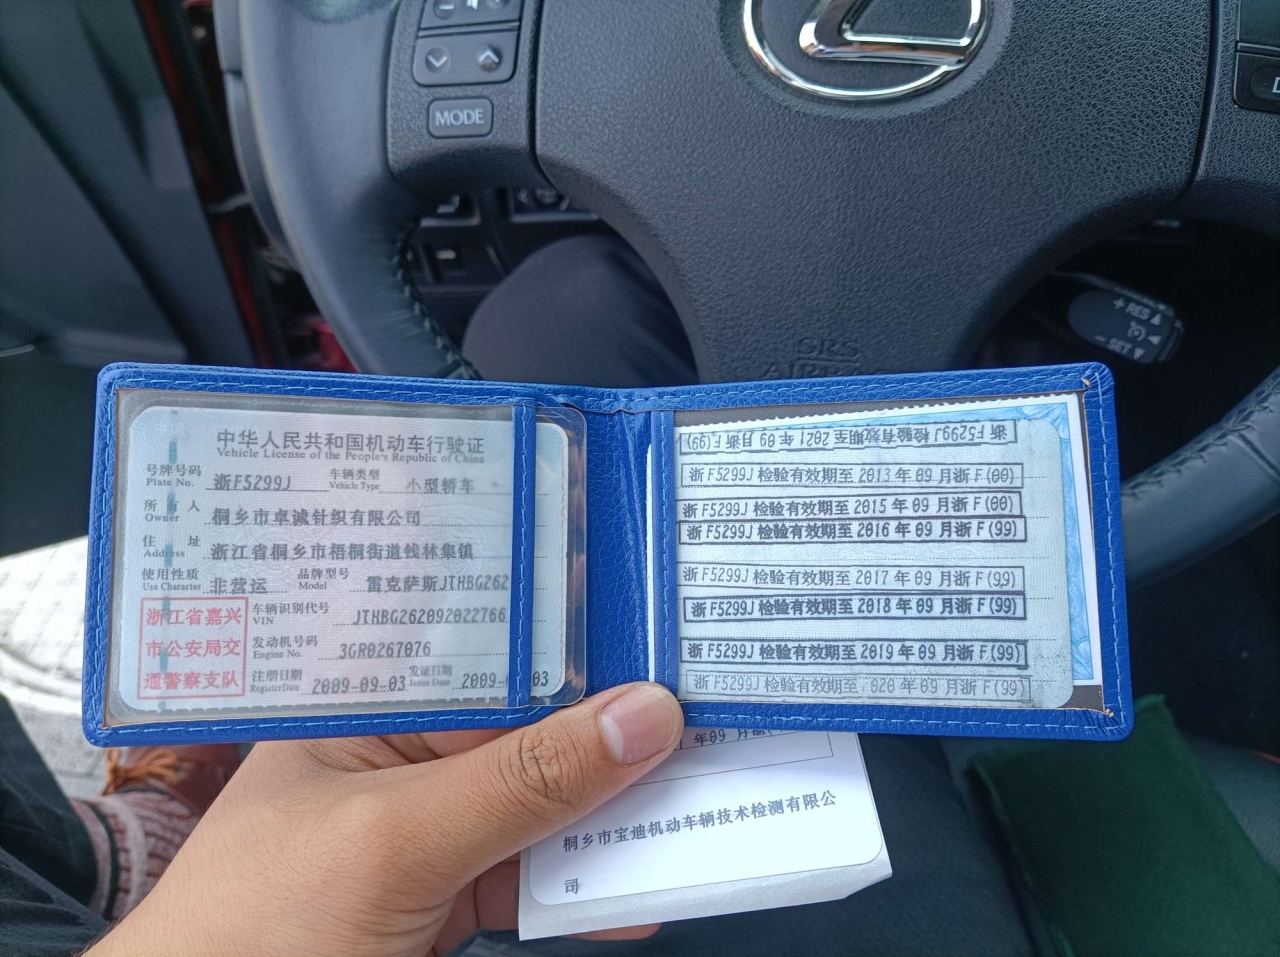 MODE
+ RES
- SET
SRS
AIRBAG
中华人民共和国机动车行驶证
Vehicle License of the People's Republic of China
号牌号码 浙F5299J 车辆类型 小型轿车
Plate No. Vehicle Type
所有人 桐乡市卓诚针织有限公司
Owner
住址 浙江省桐乡市梧桐街道钱林集镇
Address
使用性质 非营运 品牌型号 雷克萨斯JTHBG262
Use Character Model
浙江省嘉兴
市公安局交
通警察支队
车辆识别代号 JTHBG262092022766
VIN
发动机号码 3GR0267076
Engine No.
注册日期 2009-09-03 发证日期 2009- 03
Register Date Issue Date
浙F5299J检验有效期至2021年09月浙F(99)
浙F5299J检验有效期至2013年09月浙F(00)
浙F5299J检验有效期至2015年09月浙F(00)
浙F5299J检验有效期至2016年09月浙F(99)
浙F5299J检验有效期至2017年09月浙F(99)
浙F5299J检验有效期至2018年09月浙F(99)
浙F5299J检验有效期至2019年09月浙F(99)
浙F5299J检验有效期至 020年09月浙F(99)
年09月
桐乡市宝迪机动车辆技术检测有限公
司